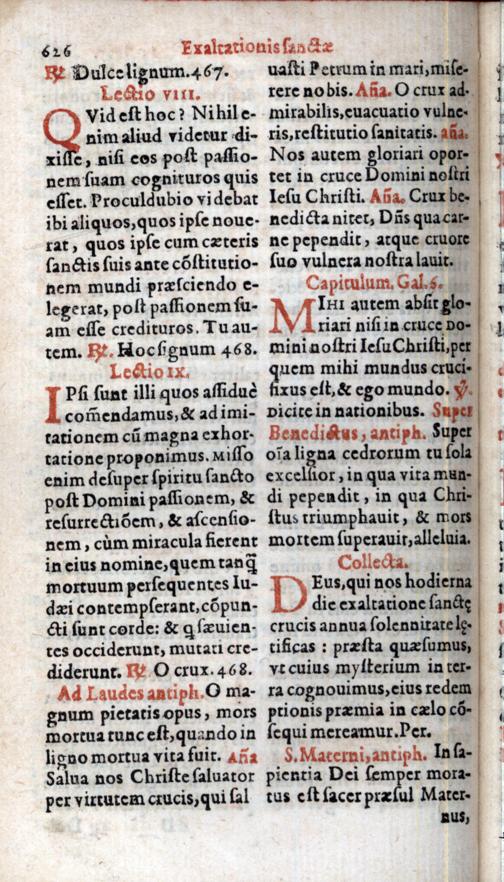 626
Exaltationis sanctæ
℟ Dulce lignum. 467.
Lectio VIII.
QVid est hoc? Nihil e-
nim aliud videtur di-
xisse, nisi eos post passio-
nem suam cognituros quis
esset. Proculdubio videbat
ibi aliquos, quos ipse noue-
rat, quos ipse cum cæteris
sanctis suis ante cōstitutio-
nem mundi præsciendo e-
legerat, post passionem su-
am esse credituros. Tu au-
tem. ℟. Hoc signum 468.
Lectio IX.
IPsi sunt illi quos assiduè
com̄endamus, & ad imi-
tationem cū magna exhor-
tatione proponimus. Misso
enim desuper spiritu sancto
post Domini passionem, &
resurrectiōem, & ascensio-
nem, cùm miracula fierent
in eius nomine, quem tanq̃
mortuum persequentes Iu-
dæi contempserant, cōpun-
cti sunt corde: & q sæuien-
tes occiderunt, mutati cre-
diderunt. ℟ O crux. 468.
Ad Laudes antiph. O ma-
gnum pietatis opus, mors
mortua tunc est, quando in
ligno mortua vita fuit. Aña
Salua nos Christe saluator
per virtutem crucis, qui sal
uasti Petrum in mari, mise-
rere nobis. Aña. O crux ad-
mirabilis, euacuatio vulne-
ris, restitutio sanitatis. aña.
Nos autem gloriari opor-
tet in cruce Domini nostri
Iesu Christi. Aña. Crux be-
nedicta nitet, Dñs qua car-
ne pependit, atque cruore
suo vulnera nostra lauit.
Capitulum. Gal. 6.
MIHI autem absit glo-
riari nisi in cruce Do-
mini nostri Iesu Christi, per
quem mihi mundus cruci-
fixus est, & ego mundo. ℣.
Dicite in nationibus. Super
Benedictus, antiph. Super
oīa ligna cedrorum tu sola
excelsior, in qua vita mun-
di pependit, in qua Chri-
stus triumphauit, & mors
mortem superauit, alleluia.
Collecta.
DEus, qui nos hodierna
die exaltatione sanctę
crucis annua solennitate lę-
tificas: præsta quæsumus,
vt cuius mysterium in ter-
ra cognouimus, eius redem
ptionis præmia in cælo cō-
sequi mereamur. Per.
S. Materni, antiph. In sa-
pientia Dei semper mora-
tus est sacer præsul Mater-
nus,